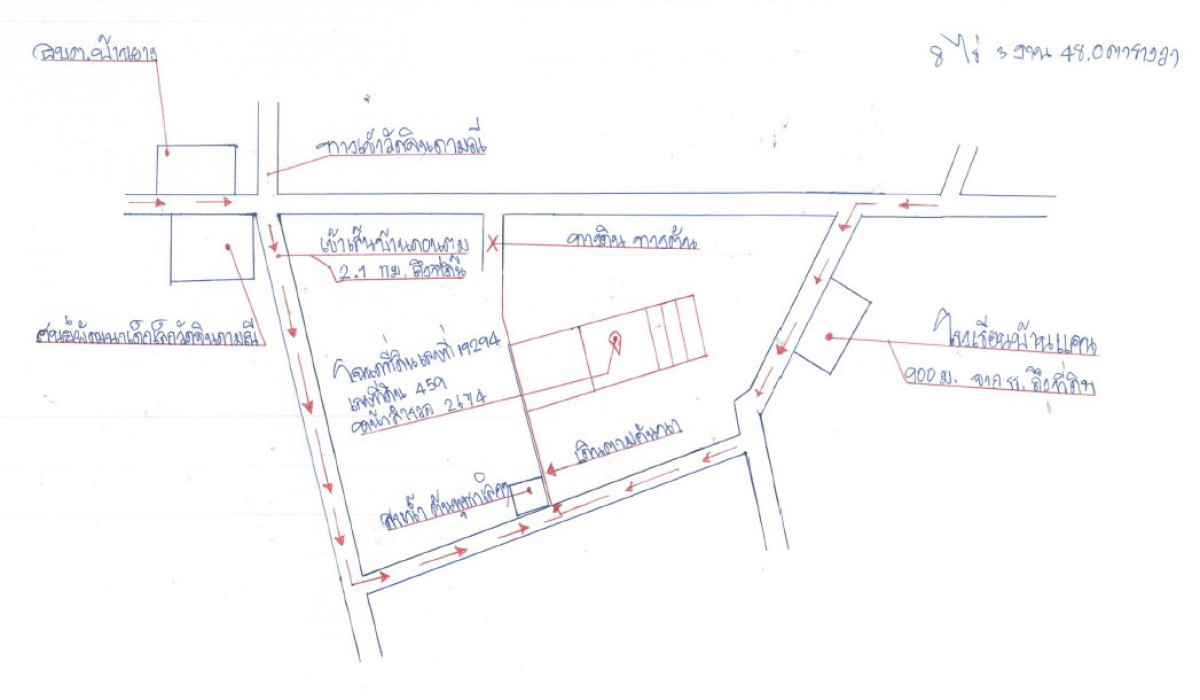 อบต.บ้านยาง
8 ไร่ 3 งาน 48.0 ตารางวา
ทางเข้าวัดจินดามณี
เข้าเส้นบ้านดอนตูม
2.1 กม. ถึงที่ดิน
ทางดิน ทางตัน
ศูนย์พัฒนาเด็กเล็กวัดจินดามณี
โฉนดที่ดินเลขที่ 19294
เลขที่ดิน 459
หน้าสำรวจ 2674
โรงเรียนบ้านแคน
900 ม. จาก รร. ถึงที่ดิน
เดินตามคันนา
สระน้ำ ต้นหูกวาง